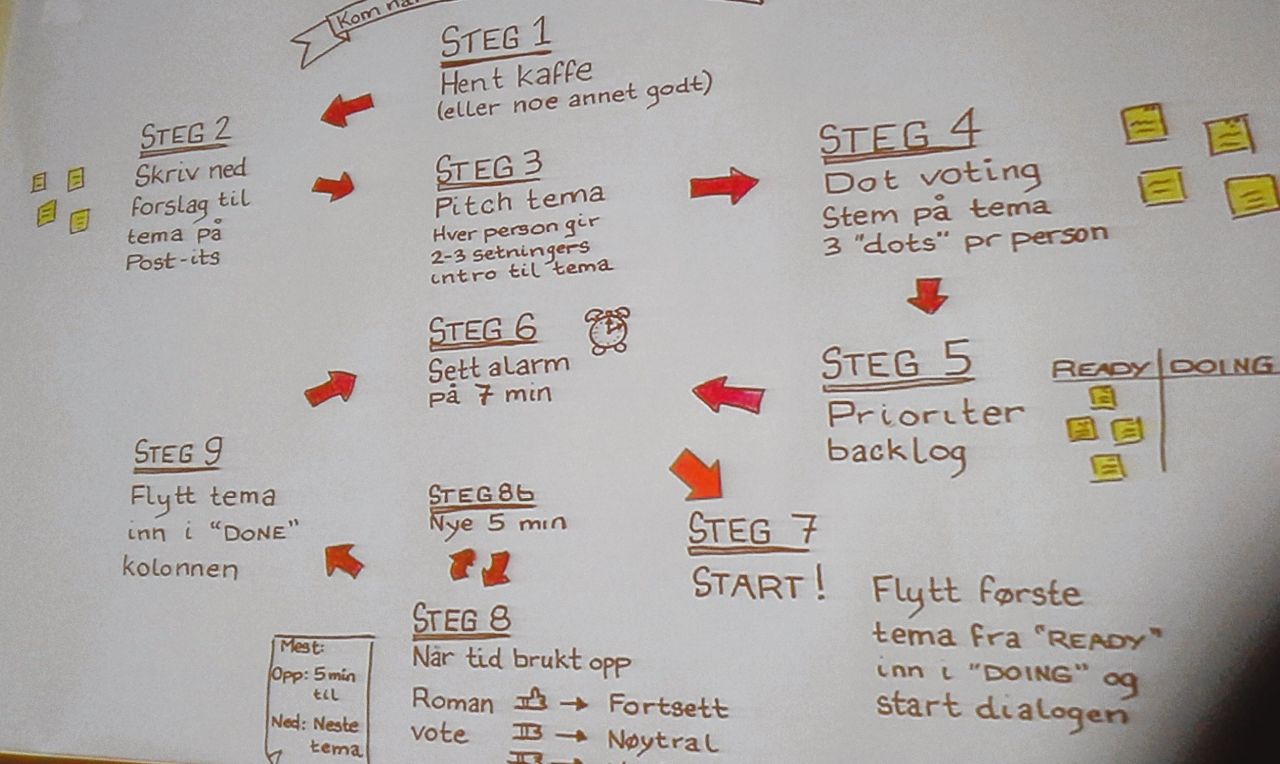 Kom
STEG 1
Hent kaffe
(eller noe annet godt)
STEG 2
Skriv ned
forslag til
tema på
Post-its
STEG 3
Pitch tema
Hver person gir
2-3 setningers
intro til tema
STEG 4
Dot voting
Stem på tema
3 "dots" pr person
STEG 5
Prioriter
backlog
READY DOING
STEG 6
Sett alarm
på 7 min
STEG 7
START!
Flytt første
tema fra "READY"
inn i "DOING" og
start dialogen
STEG 8
Når tid brukt opp
Roman
vote
Fortsett
Nøytral
Mest:
Opp: 5 min
til
Ned: Neste
tema
STEG 8b
Nye 5 min
STEG 9
Flytt tema
inn i "DONE"
kolonnen